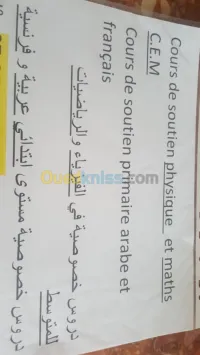 Cours de soutien physique et maths
C.E.M
Cours de soutien primaire arabe et
français
دروس خصوصية في الفيزياء والرياضيات
للمتوسط
دروس خصوصية مستوى ابتدائي عربية و فرنسية
Ouedkniss.com